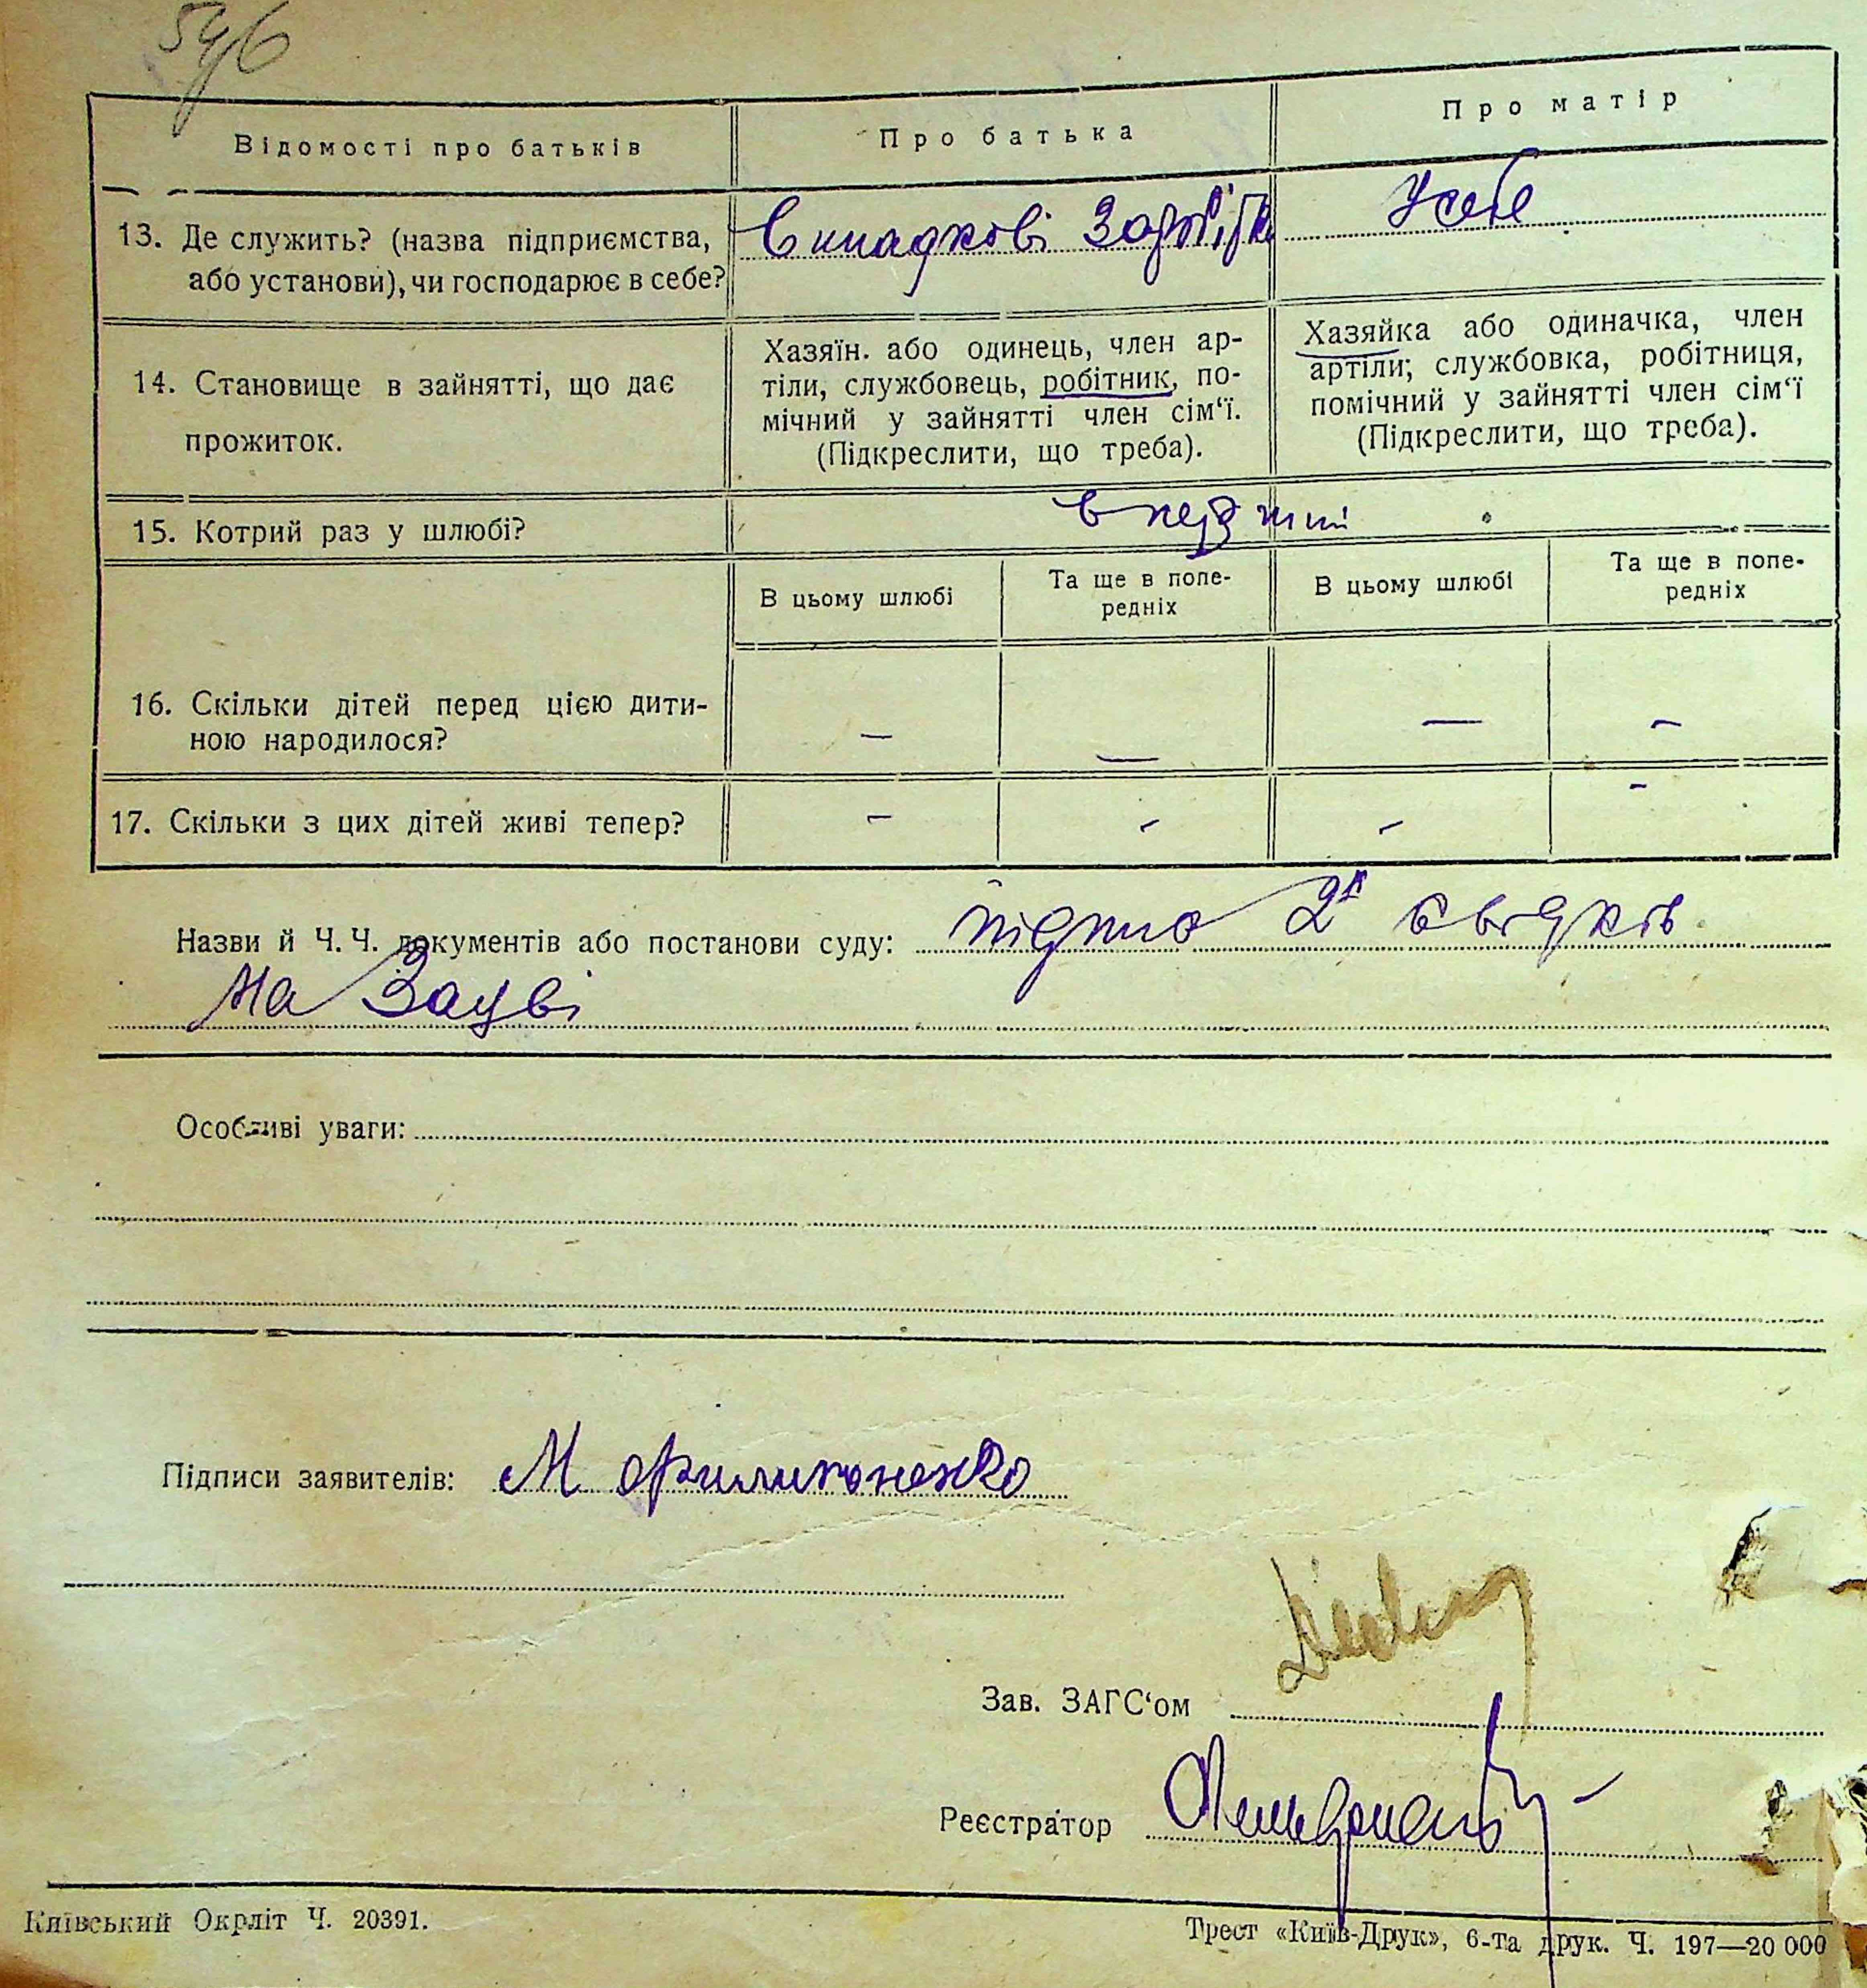 Відомості про батьків
Про батька
Про матір
13. Де служить? (назва підприємства,
або установи), чи господарює в себе?
Випадкові Заробітк
У себе
14. Становище в зайнятті, що дає
прожиток.
Хазяїн. або одинець, член ар-
тіли, службовець, робітник, по-
мічний у зайнятті член сім‘ї.
(Підкреслити, що треба).
Хазяйка або одиначка, член
артіли; службовка, робітниця,
помічний у зайнятті член сім‘ї
(Підкреслити, що треба).
15. Котрий раз у шлюбі?
В цьому шлюбі
Та ще в попе-
редніх
В цьому шлюбі
Та ще в попе-
редніх
16. Скільки дітей перед цією дити-
ною народилося?
— — — —
17. Скільки з цих дітей живі тепер?
— — — —
Назви й Ч. Ч. документів або постанови суду: підпис 2х свідків
на Заяві
Особливі уваги:
Підписи заявителів: М Филипоненко
Зав. ЗАГС‘ом
Реєстратор
Київський Окрліт Ч. 20391.
Трест «Київ-Друк», 6-та друк. Ч. 197—20 000